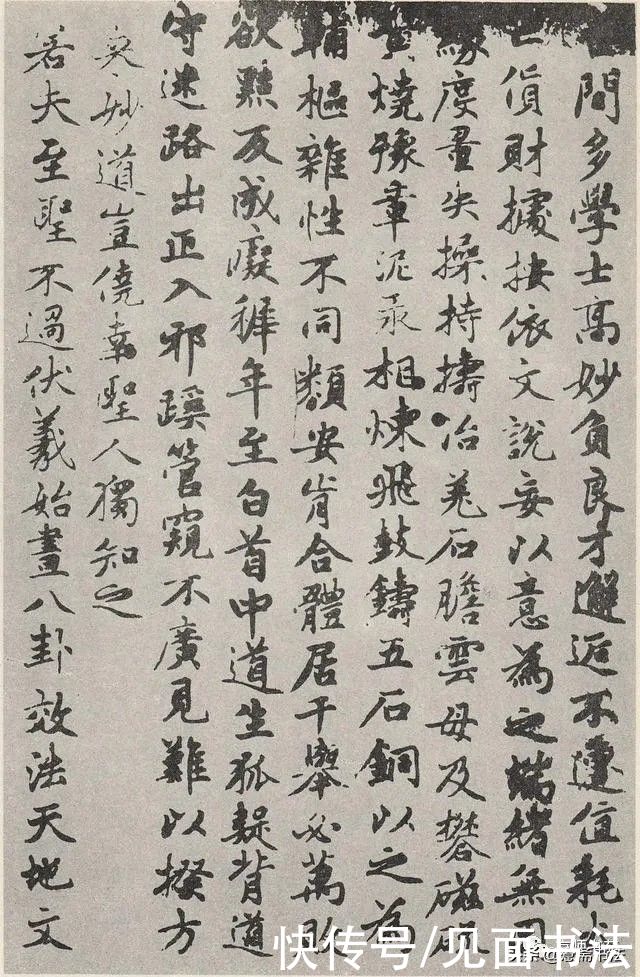 間多學士高妙負良才邂逅不遭值耗
貨財據按依文說妄以意為之端緒無因
度量失操持擣冶羌石膽雲母及礬磁
黃燒豫章泥汞相煉飛鼓鑄五石銅以之為
輔樞雜性不同類安肯合體居千舉必萬敗
欲黠反成癡稚年至白首中道生狐疑背道
守迷路出正入邪蹊管窺不廣見難以揆方
來妙道豈僥幸聖人獨知之
若夫至聖不過伏羲始畫八卦效法天地文
快传号/见面书法